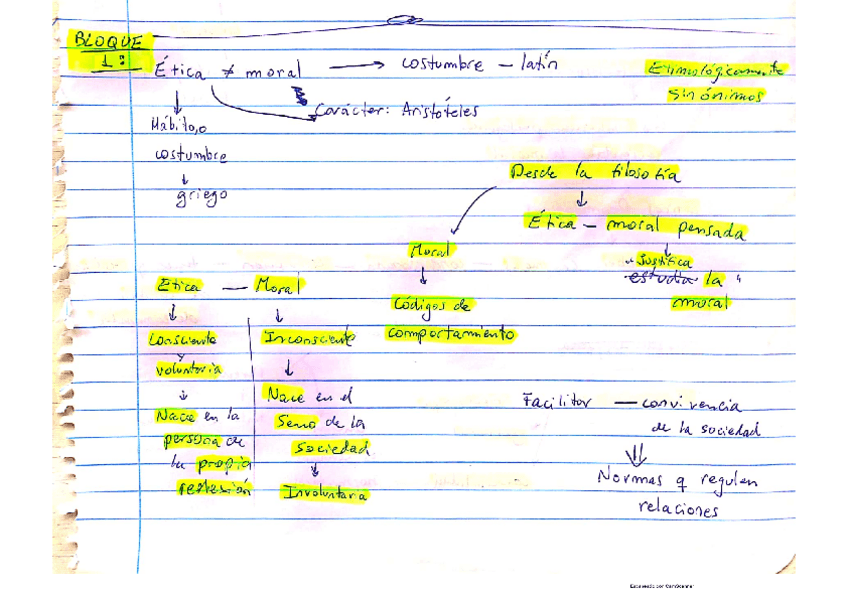 BLOQUE
1:
Ética ≠ moral → costumbre - latín
Etimológicamente
sinónimos
Carácter: Aristóteles
Hábito, o
costumbre
↓
griego
Desde la filosofía
↓
Ética - moral pensada
↓
"Justifica
estudia la "
moral
Moral
↓
Códigos de
comportamiento
Etica — Moral
↓ ↓
Consciente
y
voluntaria
↓
Nace en la
persona de
la propia
reflexión
Inconsciente
↓
Nace en el
Seno de la
sociedad
↓
Involuntaria
Facilitor — convivencia
de la sociedad
⇓
Normas q regulen
relaciones
Escaneado por CamScanner